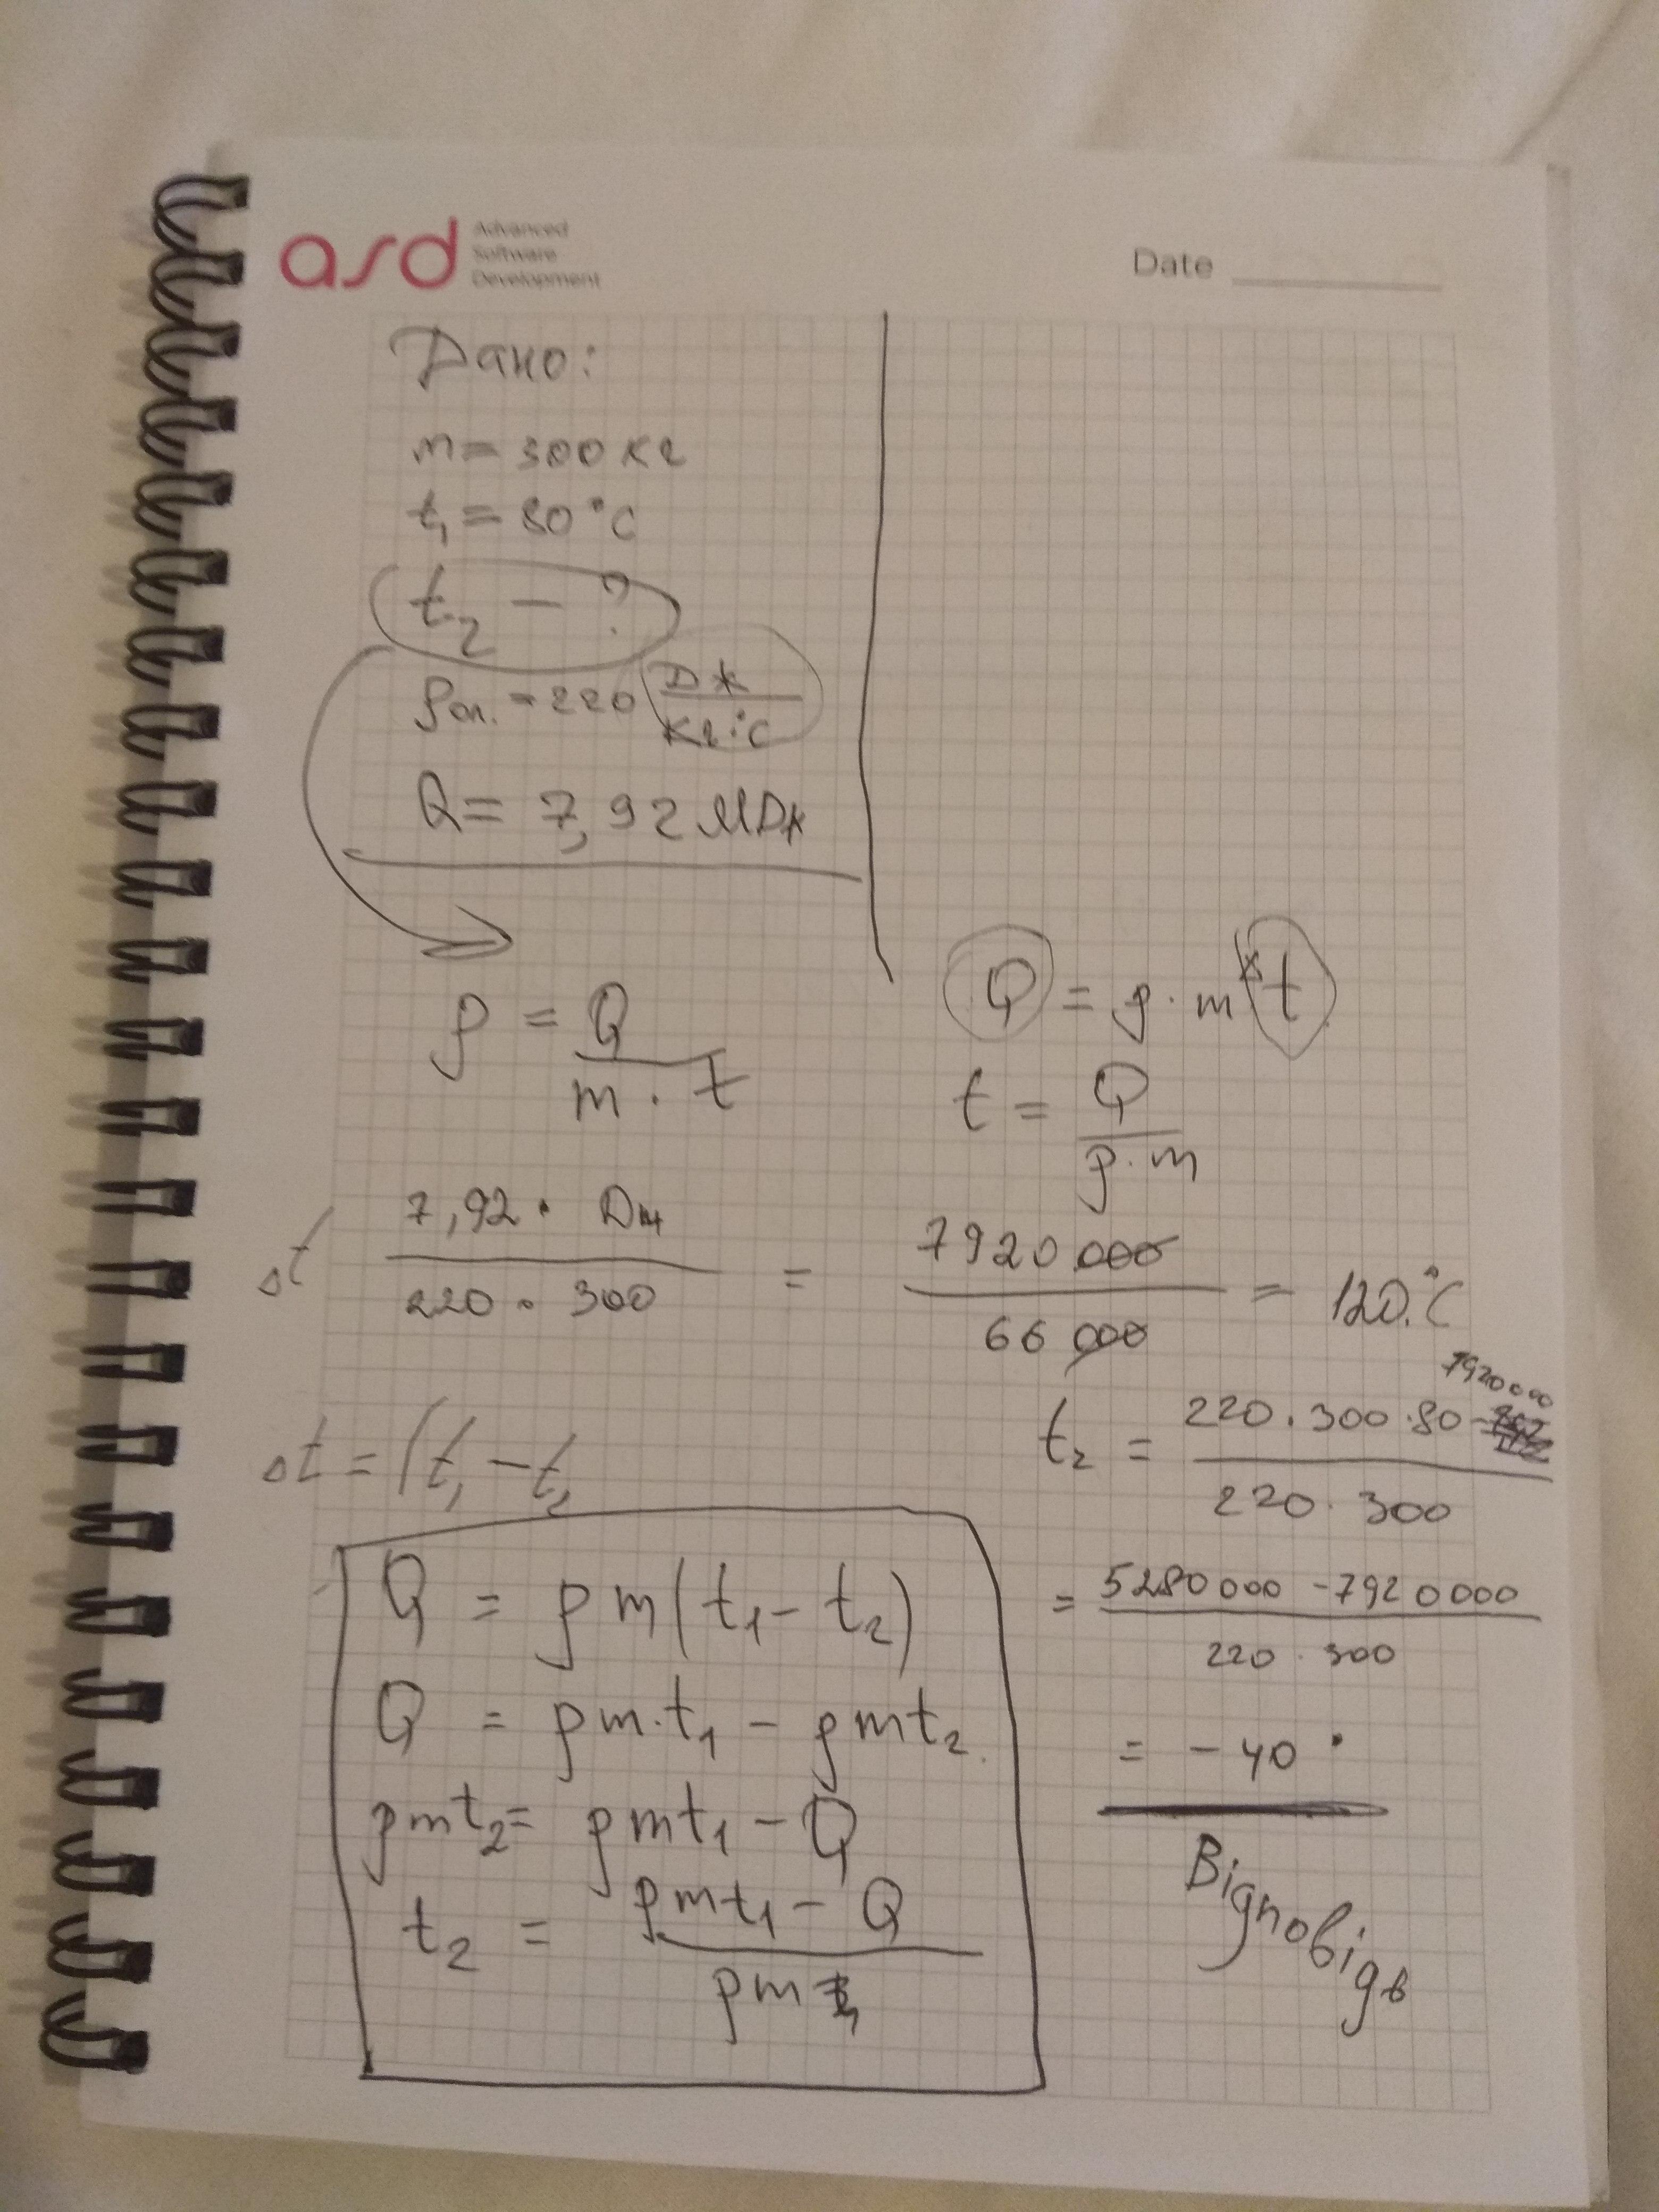 asd Advanced
Software
Development
Date
Дано:
m = 300 кг
t₁ = 80°C
t₂ - ?
ρол. = 220 Дж/кг·°C
Q = 7,92 МДж
ρ = Q/m · t
Q = ρ · m × t
t = Q/ρ · m
Δt 7,92 · Дж/220 · 300 = 7920000/66000 = 120.°C
Δt = (t₁ - t₂
t₂ = 220 · 300 · 80 - 7920000/220 · 300
= 5280000 - 7920000/220 · 300
= -40°
Відповідь
Q = ρm(t₁ - t₂)
Q = ρm·t₁ - ρmt₂
ρmt₂ = ρmt₁ - Q
t₂ = ρmt₁ - Q/ρm